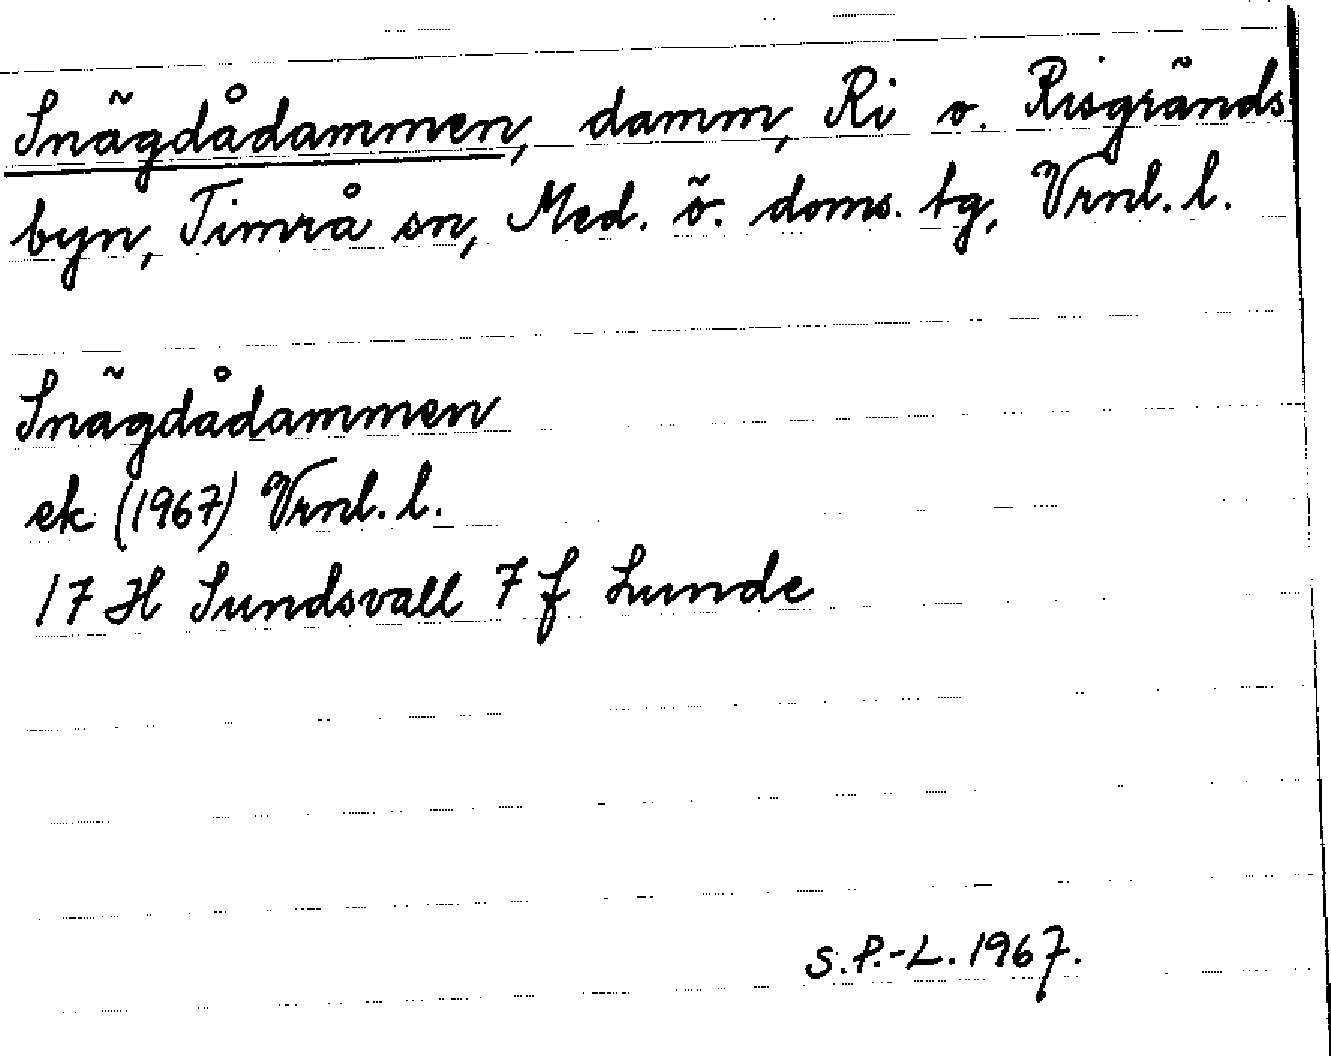 Snägdådammen, damm, Ri o. Risgränds
byn, Timrå sn, Med. ö. doms. tg, Vrnl. l.
Snägdådammen
ek (1967) Vrnl. l.
17 H Sundsvall 7 f Lunde
S.P.-L. 1967.